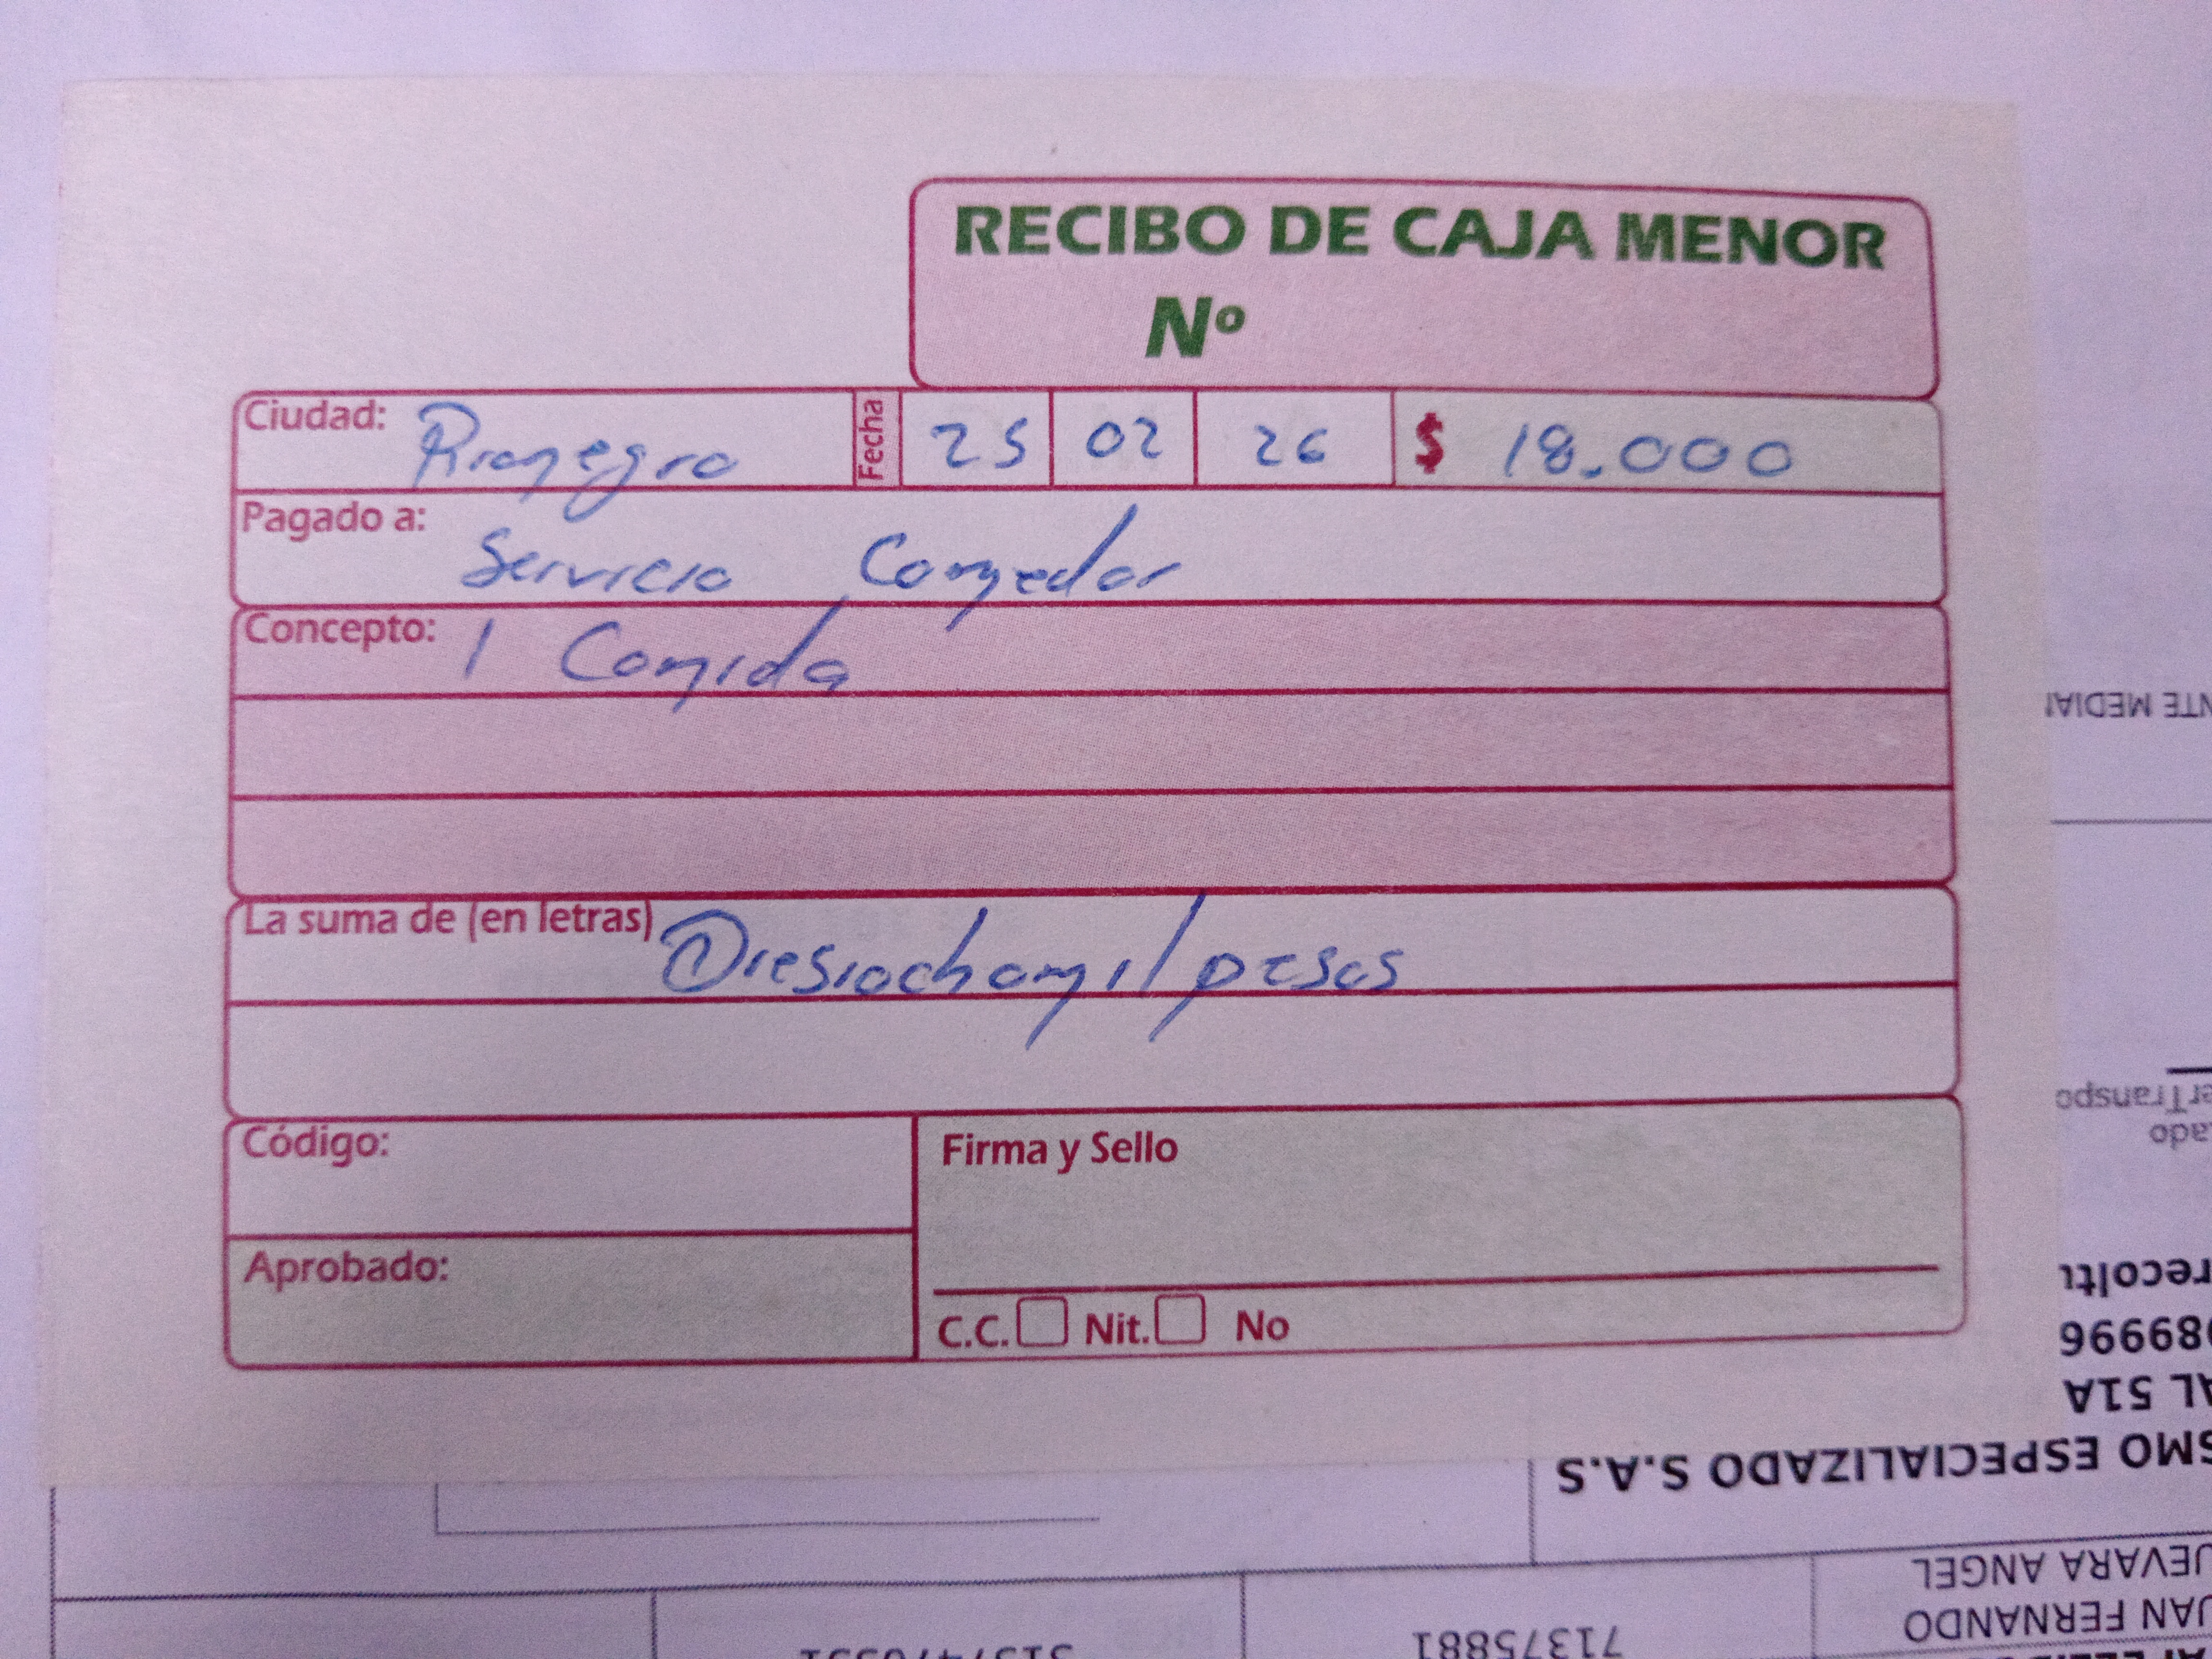 RECIBO DE CAJA MENOR
Nº
Ciudad: Rionegro Fecha 25 02 26 $ 18.000
Pagado a: Servicio Comedor
Concepto: 1 Comida
La suma de (en letras) Diesiochomil pesos
Código:
Firma y Sello
Aprobado:
C.C. Nit. No
NTE MEDIA
erTranspo
ado
recolti
989996
AL 51A
SMO ESPECIALIZADO S.A.S
UEVARA ANGEL
UAN FERNANDO
71375881